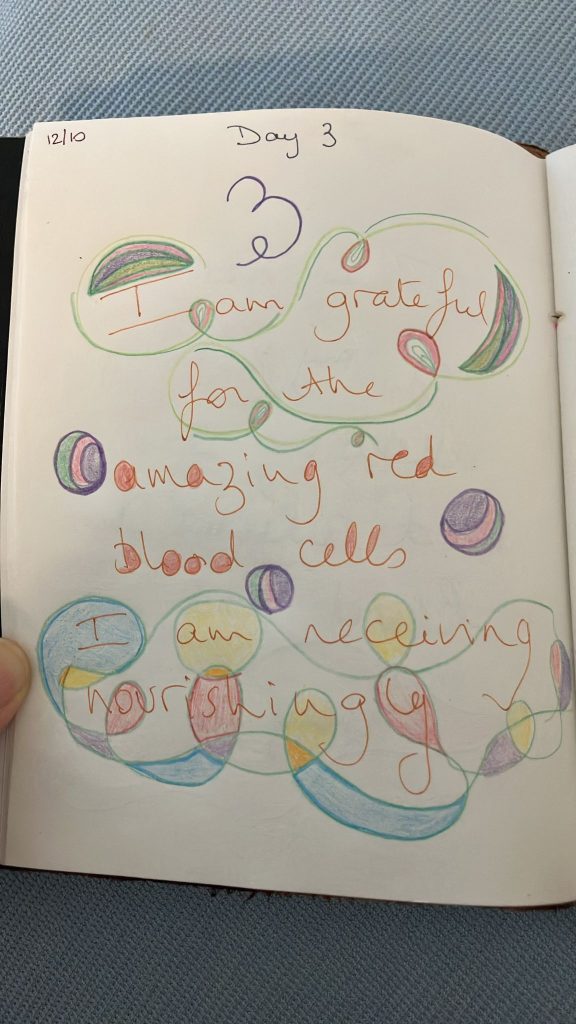 12/10
Day 3
3
I am grateful
for the
amazing red
blood cells
I am receiving
nourishingly